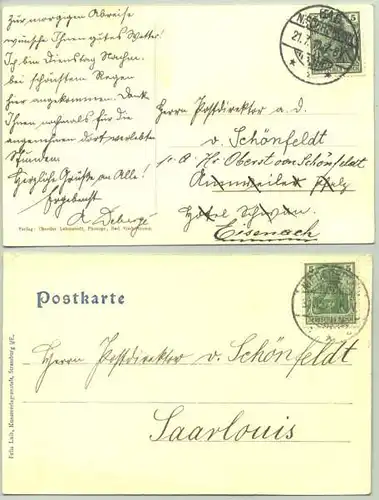 zur morgigen Abreise
wünsche Ihnen gutes Wetter!
Ich bin Dienstag Nachm.
bei schönstem Regen
hier angekommen. Dank
Ihnen nochmals für die
angenehmen dort verlebten
Stunden.
Herzliche Grüße an Alle!
Ergebenst
Herrn Postdirektor a. D.
v. Schönfeldt
Oberst von Schönfeldt
Annweiler Pfalz
Hotel Schwan.
Eisenach
Verlag: Theodor
21.7.
5
Postkarte
Herrn Postdirektor v. Schönfeldt
Saarlouis
Felix Luib, Kunstverlagsanstalt, Strassburg i/E.